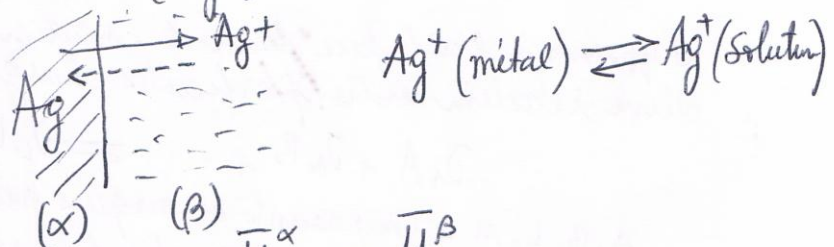 Ag⁺
Ag⁺ (métal) ⇌ Ag⁺ (Solution)
Ag
(α) (β)
μ̄^α μ̄^β